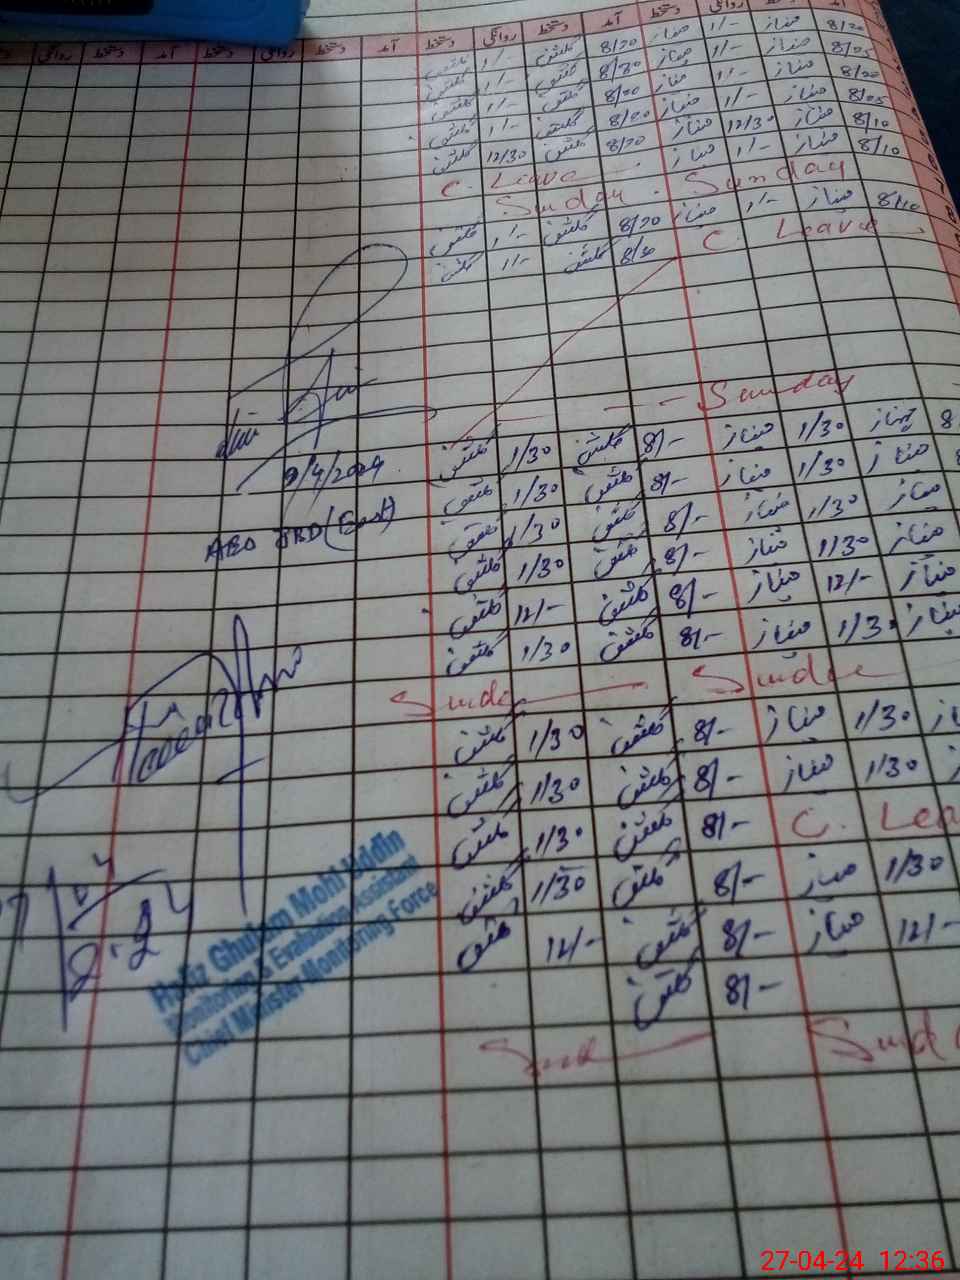 روانگی دستخط آمد دستخط روانگی دستخط آمد دستخط روانگی دستخط آمد دستخط روانگی دستخط آمد
گلشن 1/- گلشن 8/20 مناز 1/- مناز 8/20
گلشن 1/- گلشن 8/30 مناز 1/- مناز 8/05
گلشن 1/- گلشن 8/20 مناز 1/- مناز 8/00
گلشن 1/- گلشن 8/20 مناز 1/- مناز 8/05
گلشن 12/30 گلشن 8/20 مناز 12/30 مناز 8/10
C. Leave مناز 1/- مناز 8/10
Sunday Sunday
گلشن 1/- گلشن 8/20 مناز 1/- مناز 8/10
گلشن 1/- گلشن 8/30 C. Leave
Sunday
گلشن 1/30 گلشن 8/- مناز 1/30 مناز 8
9/4/2024
گلشن 1/30 گلشن 8/- مناز 1/30 مناز 8
(East)
گلشن 1/30 گلشن 8/- مناز 1/30 مناز
گلشن 1/30 گلشن 8/- مناز 1/30 مناز
گلشن 12/- گلشن 8/- مناز 12/- مناز
گلشن 1/30 گلشن 8/- مناز 1/30 مناز
گلشن 1/30 گلشن 8/- مناز 1/30
گلشن 1/30 گلشن 8/- مناز 1/30
گلشن 1/30 گلشن 8/- C. Lea
گلشن 1/30 گلشن 8/- مناز 1/30
گلشن 12/- گلشن 8/- مناز 12/-
گلشن 8/-
Hafiz Ghulam Mohi Uddin
Monitoring & Evaluation Assistant
Chief Minister Monitoring Force
27-04-24 12:36